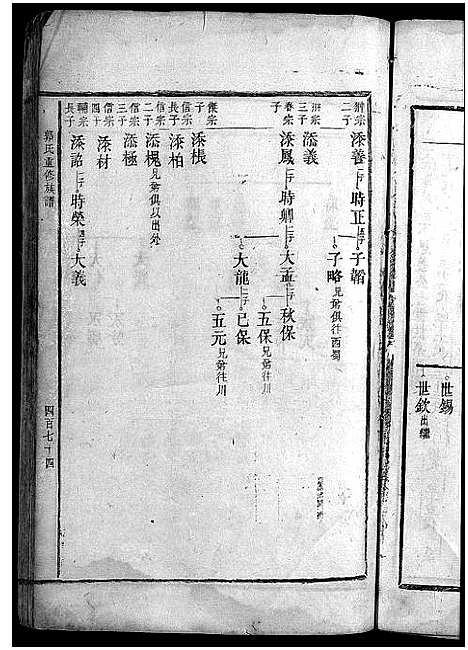 世錫
世欽出繼
二子
添善二子時正二子子韜
子略兄弟俱往西蜀
三子
添義
子
添鳳二子時卿二子大孟二子秋保
五保兄弟往川
大龍二子已保
五元兄弟往川
子
添棖
信宗長子
添柏
信宗二子
添槐兄弟俱以出外
信宗三子
添極
信宗四子
添材
輔宗長子
添詔一子時榮一子大義
郭氏重修族譜
四百七十四